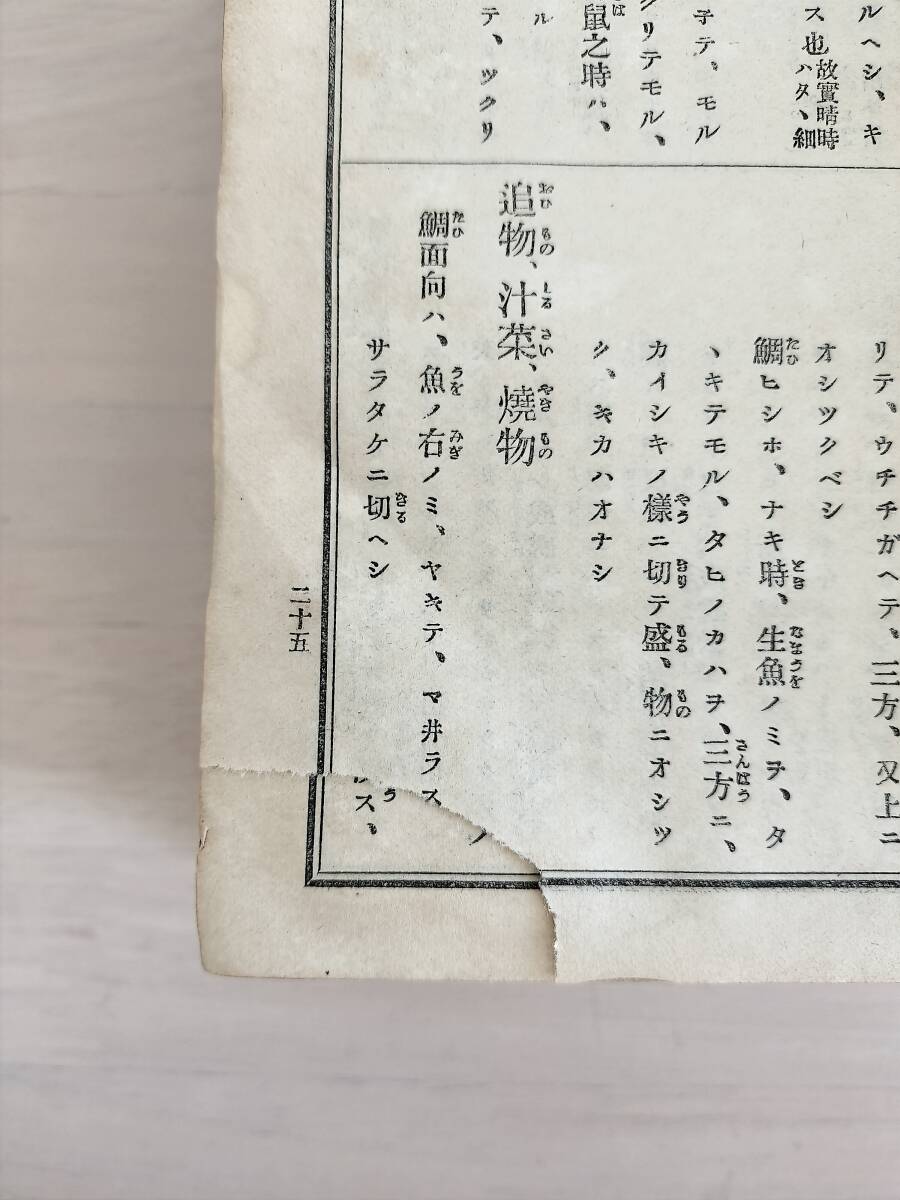 ルヘシ、キ
ス也故實晴時
ハタヽ細
子テ、モル
リテモル、
鼠之時ハ、
ル
テ、ツクリ
リテ、ウチチガヘテ、三方、又上ニ
オシツクベシ
鯛ヒシホ、ナキ時、生魚ノミヲ、タ
ヽキテモル、タヒノカハヲ、三方ニ、
カイシキノ樣ニ切テ盛、物ニオシツ
シ、キカハオナシ
追物、汁菜、燒物
鯛面向ハ、魚ノ右ノミ、ヤキテ、マ井ラス
サラタケニ切ヘシ
ノ
ス、
二十五